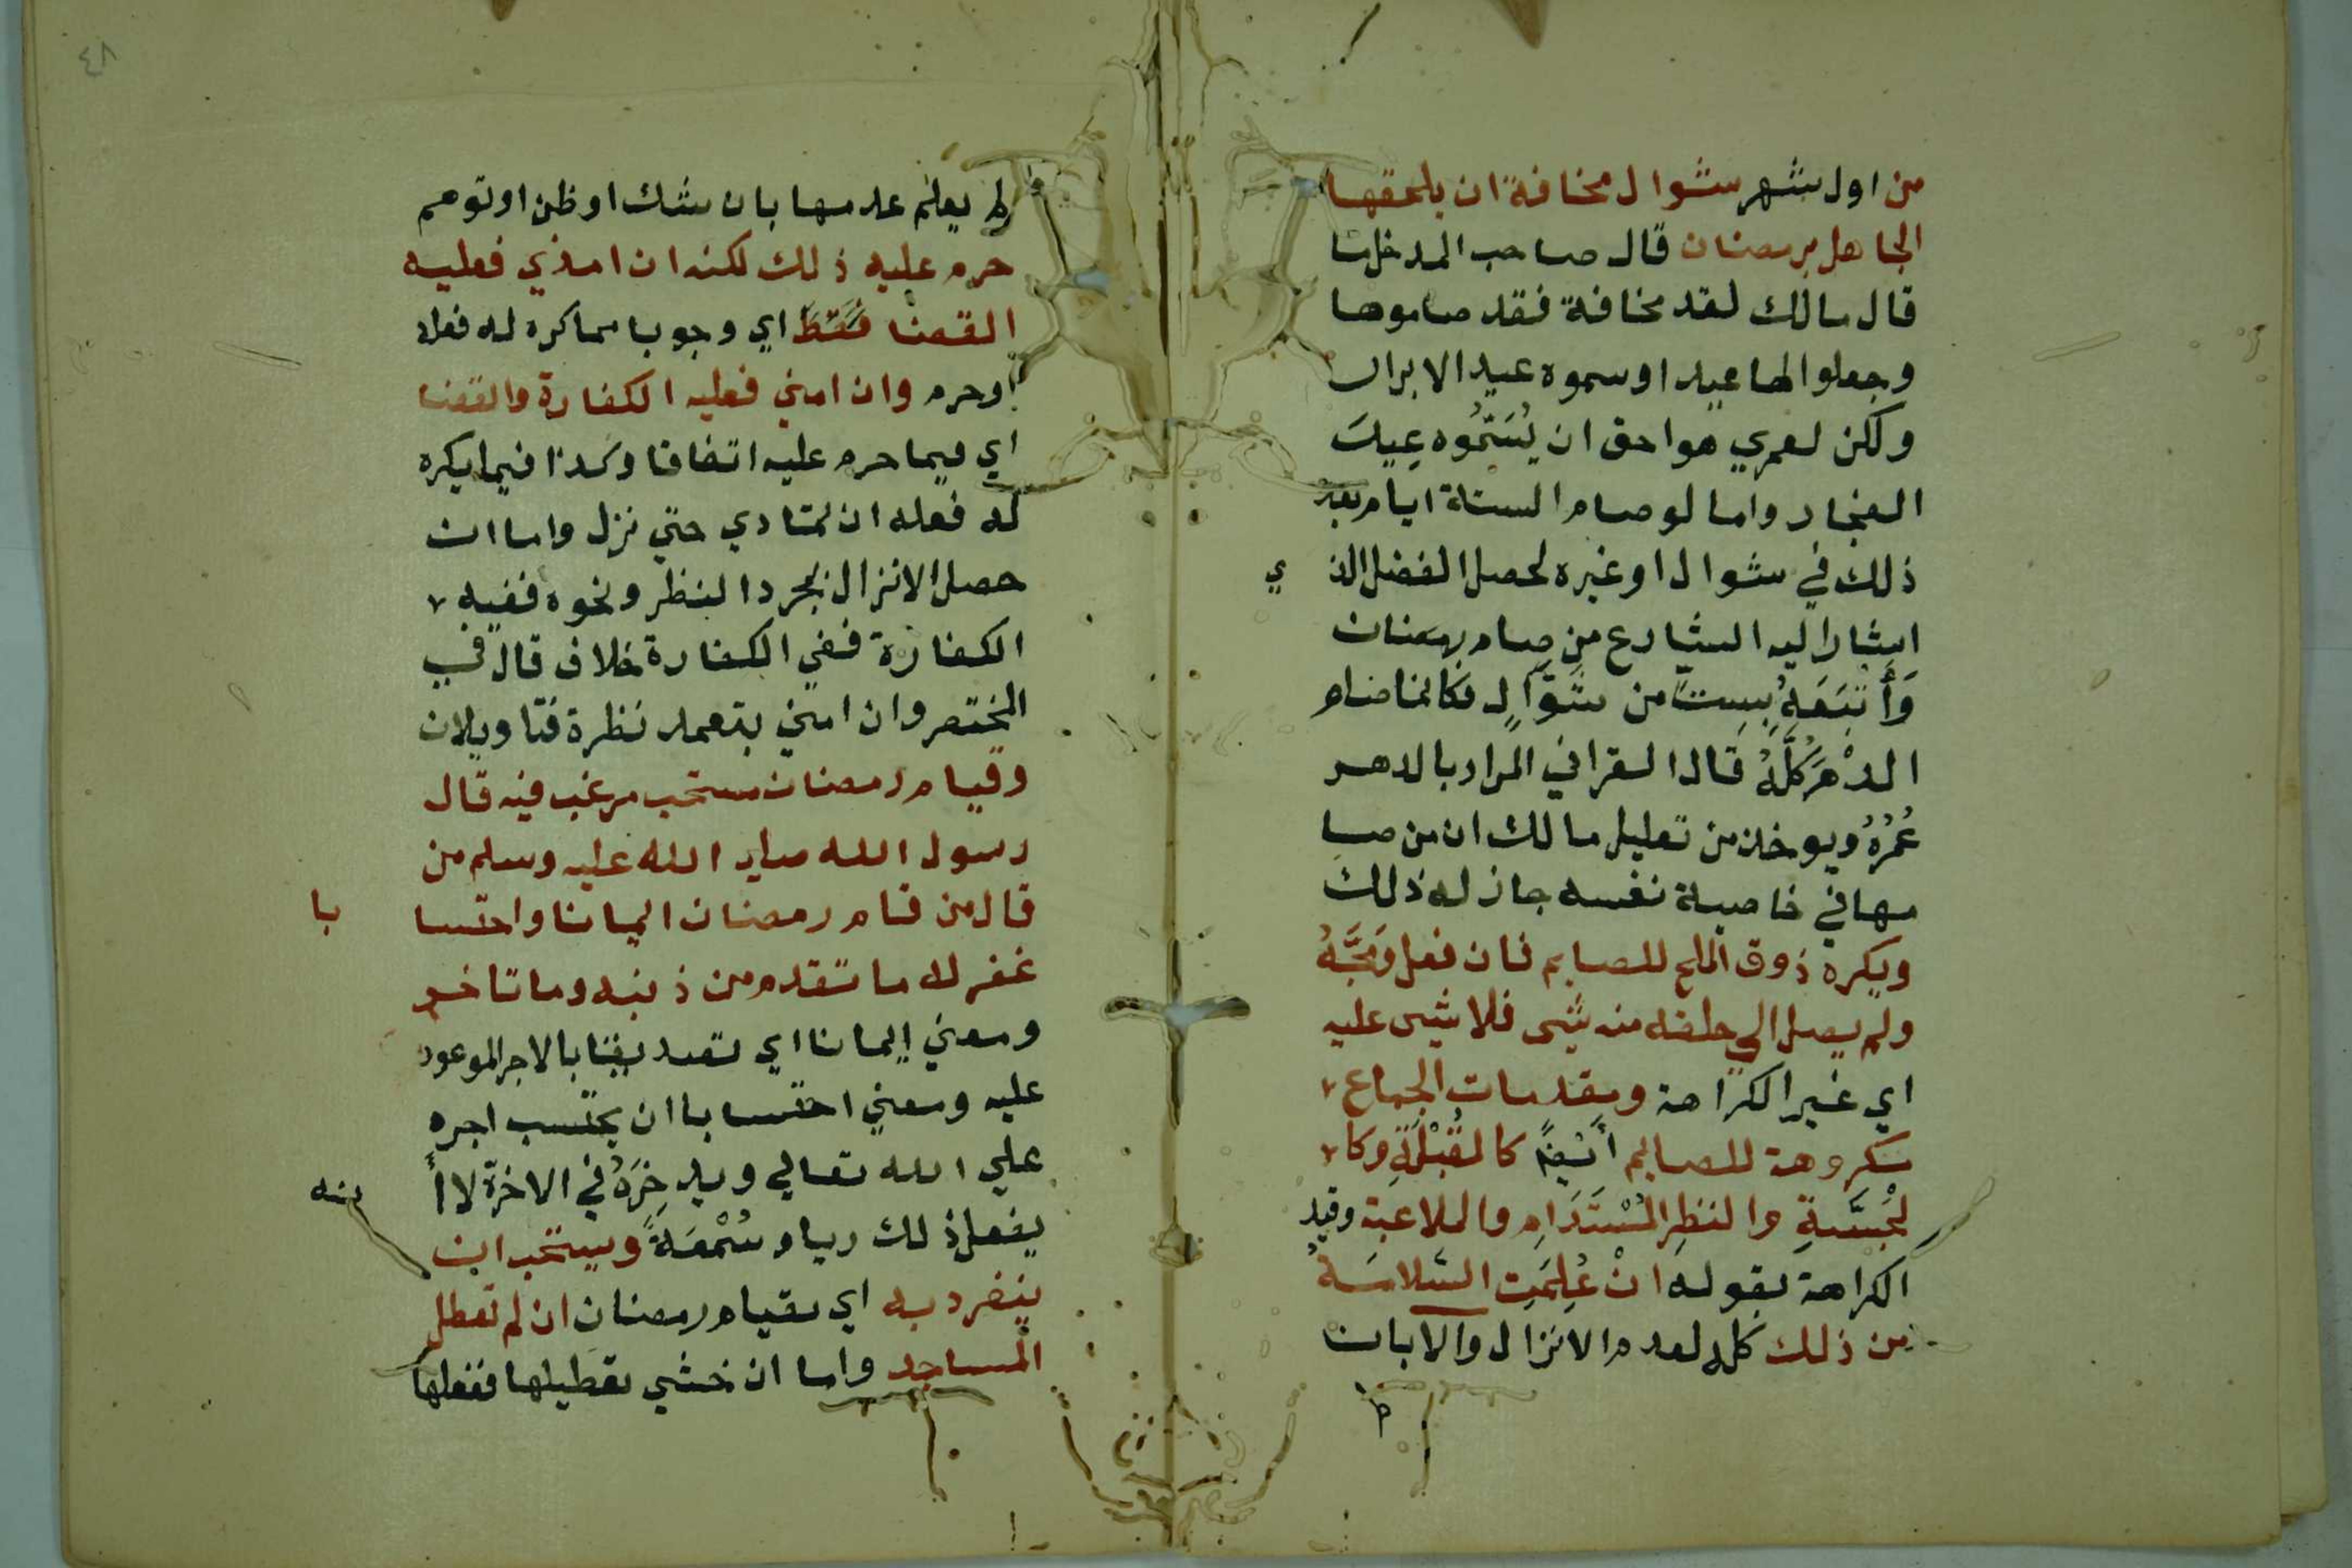 من اول شهر شوال مخافة ان يلحقها
الجاهل برمضان قال صاحب المدخل
قال مالك لقد مخافة فقد صاموها
وجعلوا لها عيدا وسموه عيد الابرار
ولكن لعمري هو احق ان يُسَمُّوه عِيدَ
الفجار واما لو صام الستة ايام بعد
ذلك في شوال او غيره لحصل الفضل الذي
اشار اليه الشارع من صام رمضان
وَأَتْبَعَهُ بِسِتٍّ من شَوَّالٍ فكانما صام
الدهرَ كُلَّهُ قال القرافي المراد بالدهر
عُمُرُهُ ويوخذ من تعليل مالك ان من صا
مها في خاصية نفسه جاز له ذلك
ويكره ذوق الملح للصايم فان فعل وَمَجَّهُ
ولم يصل الي حلقه منه شي فلا شي عليه
اي غير الكراهة ومقدمات الجماع
مكروهة للصايم أَيْضًا كالقُبْلَةِ وكا
لجَسَّةِ والنظِر المُسْتَدَامِ والملاعبة وقيد
الكراهة بقوله انْ عُلِمَتِ السَّلامَةُ
من ذلك كله لعدم الانزال والا بان
٤٨
لم يعلم عدمها بان شك او ظن او توهم
حرم عليه ذلك لكنه ان امذي فعليه
القضا فَقَطْ اي وجوبا مما كره له فعله
اوحرم وان امني فعليه الكفارة والقضا
اي فيما حرم عليه اتفاقا وكذا فيما يكره
له فعله ان تمادي حتي نزل واما ان
حصل الانزال بمجرد النظر ونحوه ففيه
الكفارة ففي الكفارة خلاف قال في
المختصر وان امني بتعمد نظرة فتاويلان
وقيام رمضان مستحب مرغب فيه قال
رسول الله صلي الله عليه وسلم من
قال من قام رمضان ايمانا واحتسابا
غفر له ما تقدم من ذنبه وما تاخر
ومعني إيمانا اي تصديقا بالاجر الموعود
عليه ومعني احتسابا ان يحتسب اجره
علي الله تعالي ويدخِرَهُ في الاخرة لا أ
نه
يفعل ذلك رياء وسُمْعَةً ويستحب ان
ينفرد به اي بقيام رمضان ان لم تعطل
المساجد واما ان خشي تعطيلها ففعلها